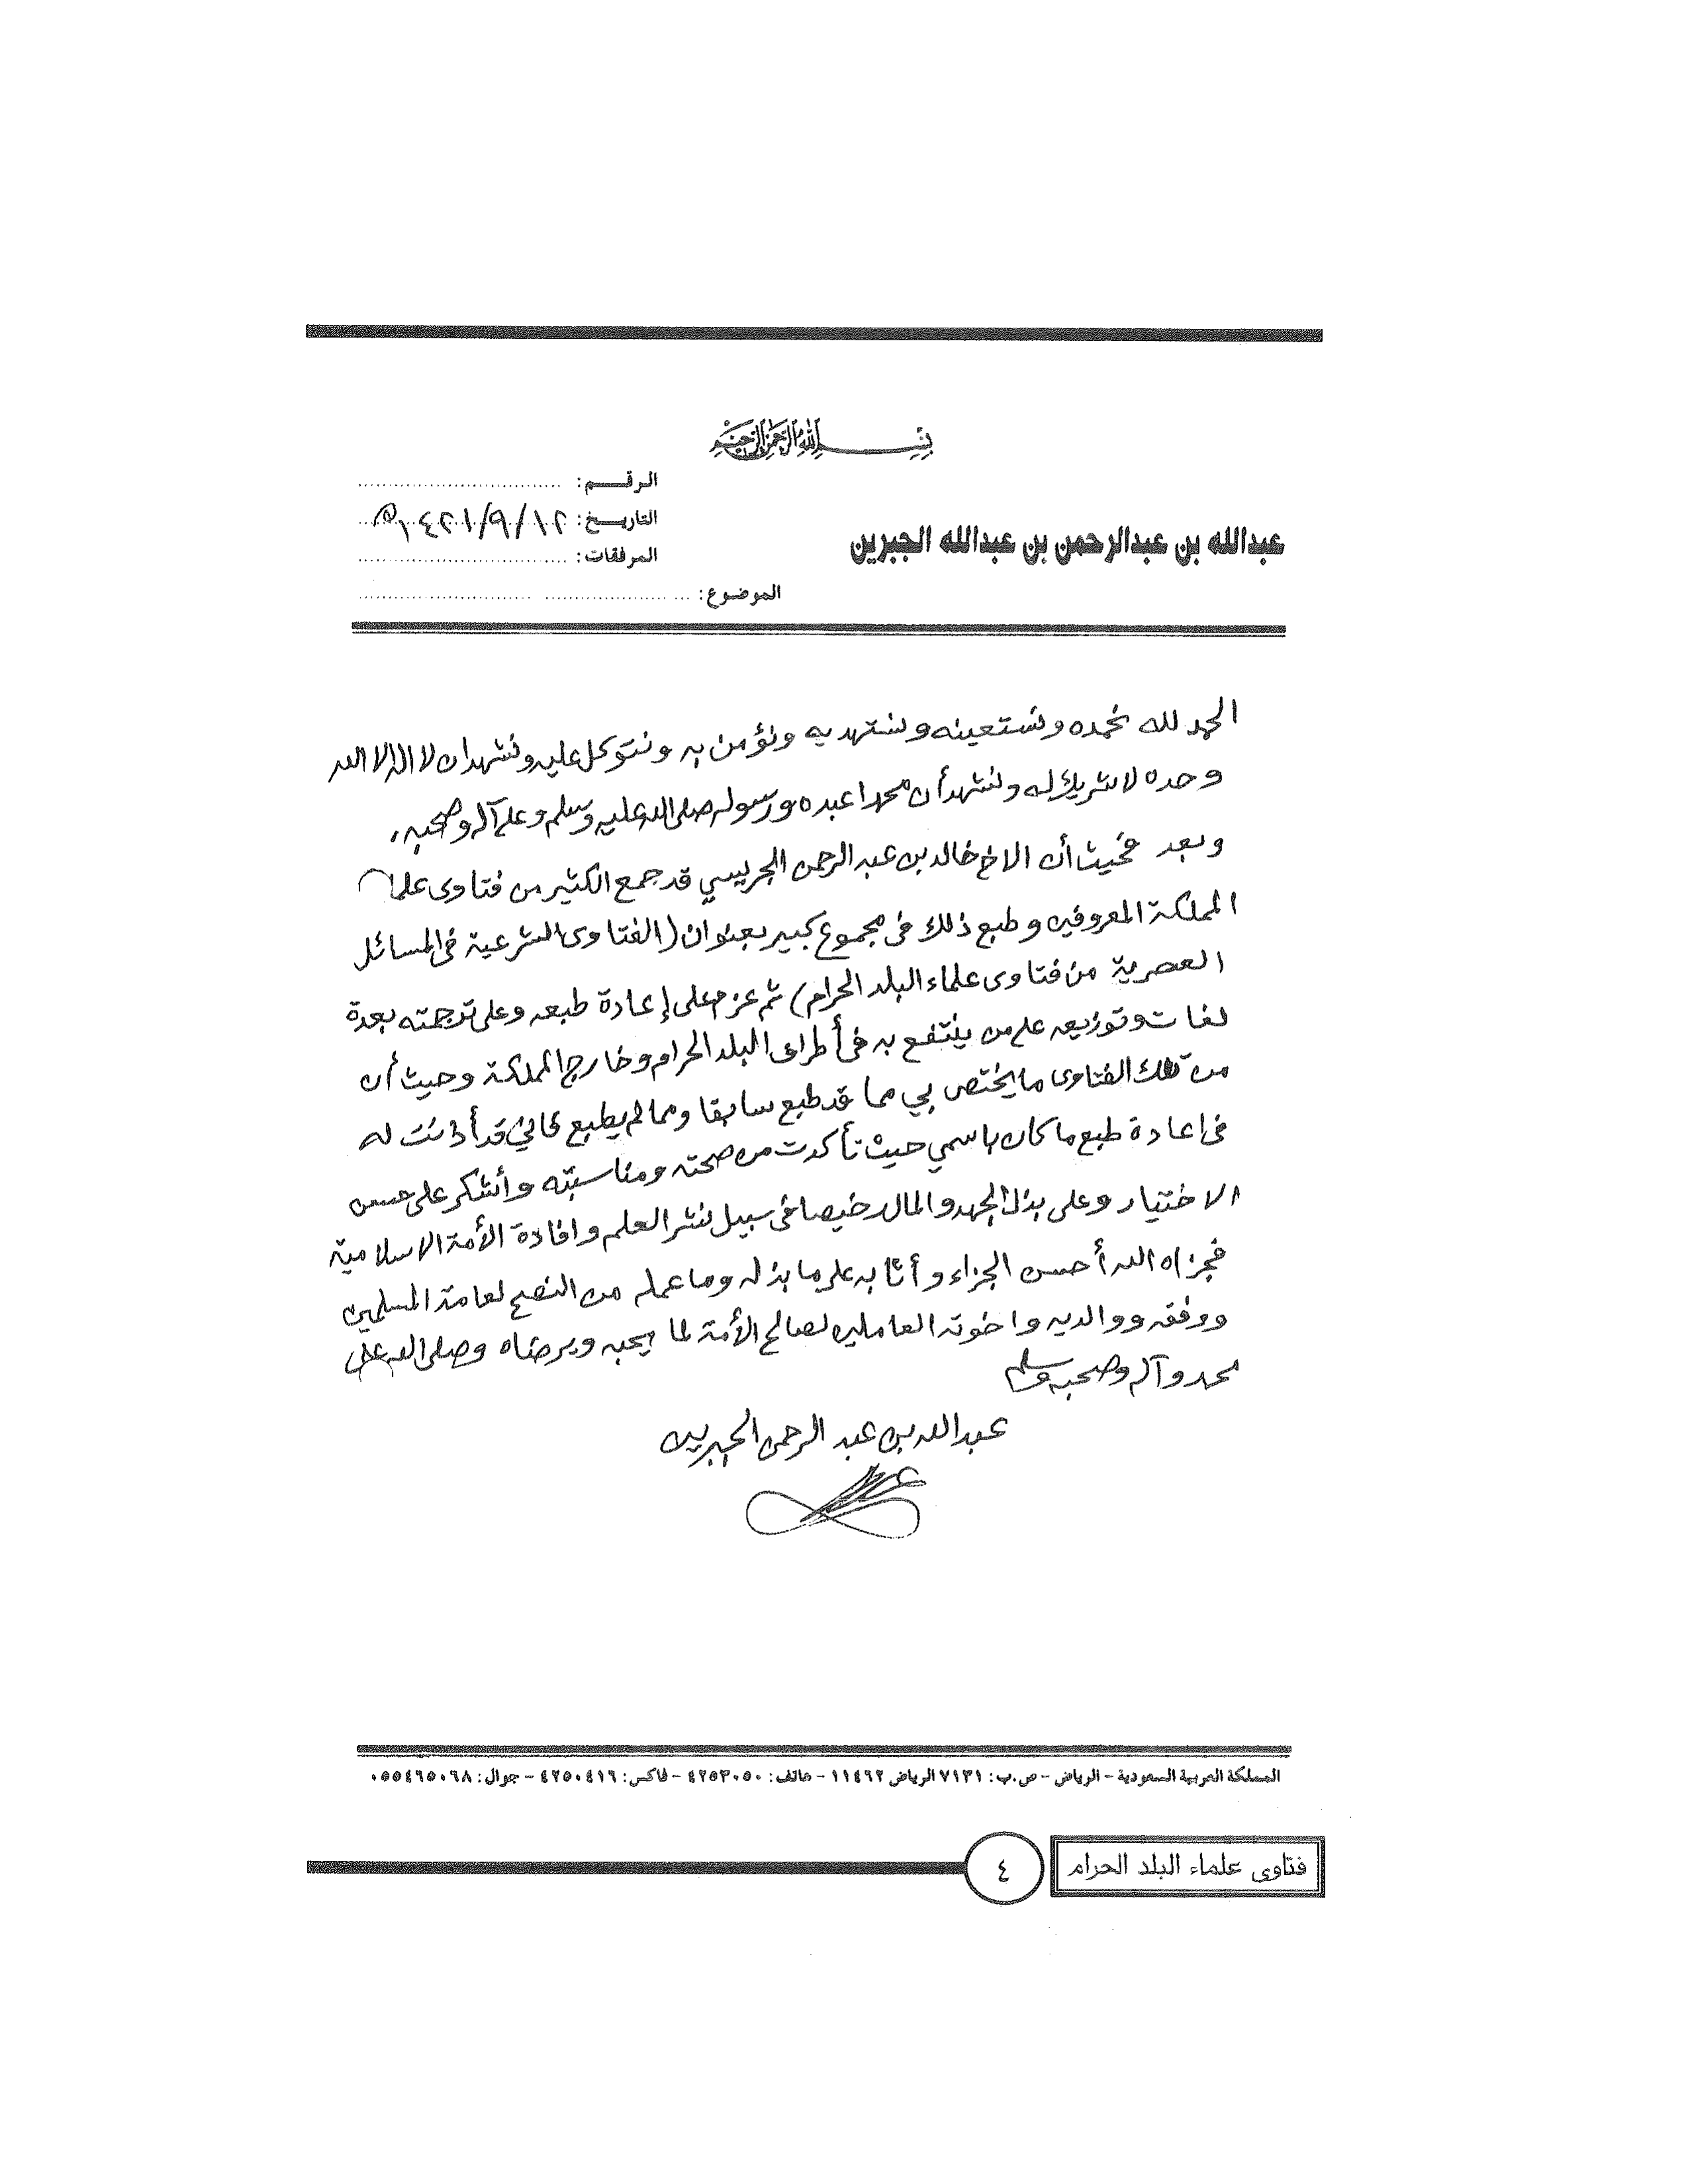 بسم الله الرحمن الرحيم
الرقم:
التاريخ: ١٤٢١/٩/١٢هـ
عبدالله بن عبدالرحمن بن عبدالله الجبرين
المرفقات:
الموضوع:
الحمد لله نحمده ونستعينه ونستهديه ونؤمن به ونتوكل عليه ونشهد ان لا اله الا الله
وحده لا شريك له ونشهد أن محمدا عبده ورسوله صلى الله عليه وسلم وعلى آله وصحبه،
وبعد فحيث أن الاخ خالد بن عبد الرحمن الجريسي قد جمع الكثير من فتاوى علماء
المملكة المعروفين وطبع ذلك في مجموع كبير بعنوان (الفتاوى الشرعية في المسائل
العصرية من فتاوى علماء البلد الحرام) ثم عزم على إعادة طبعه وعلى ترجمته بعدة
لغات وتوزيعه على من ينتفع به في أطراف البلد الحرام وخارج المملكة وحيث أن
من تلك الفتاوى ما يختص بي مما قد طبع سابقا ومما لم يطبع فاني قد أذنت له
في اعادة طبع ما كان باسمي حيث تأكدت من صحته ومناسبته وأشكره على حسن
الاختيار وعلى بذل الجهد والمال رخيصا في سبيل نشر العلم وافادة الأمة الاسلامية
فجزاه الله أحسن الجزاء وأثابه على ما بذله وما عمله من النصح لعامة المسلمين
ووفقه ووالديه واخوته العاملين لصالح الأمة لما يحبه ويرضاه وصلى الله على
محمد وآله وصحبه وسلم
عبد الله بن عبد الرحمن الجبرين
المملكة العربية السعودية - الرياض - ص.ب: ٧١٣١ الرياض ١١٤٦٢ - هاتف: ٤٢٥٣٠٥٠ - فاكس: ٤٢٥٠٤١٦ - جوال: ٠٥٥٤٦٥٠٦٨
فتاوى علماء البلد الحرام
٤